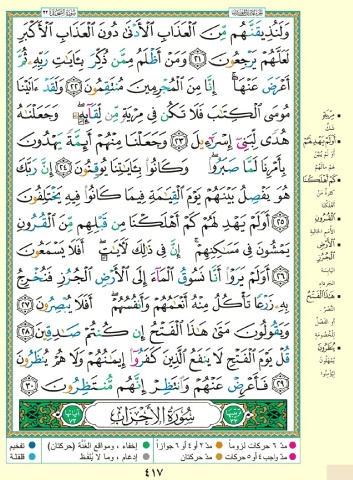 وَلَنُذِيقَنَّهُم مِّنَ ٱلْعَذَابِ ٱلْأَدْنَىٰ دُونَ ٱلْعَذَابِ ٱلْأَكْبَرِ
لَعَلَّهُمْ يَرْجِعُونَ ٢١ وَمَنْ أَظْلَمُ مِمَّن ذُكِّرَ بِـَٔايَٰتِ رَبِّهِۦ ثُمَّ
أَعْرَضَ عَنْهَآ ۚ إِنَّا مِنَ ٱلْمُجْرِمِينَ مُنتَقِمُونَ ٢٢ وَلَقَدْ ءَاتَيْنَا
مُوسَى ٱلْكِتَٰبَ فَلَا تَكُن فِى مِرْيَةٍ مِّن لِّقَآئِهِۦ ۖ وَجَعَلْنَٰهُ
هُدًى لِّبَنِىٓ إِسْرَٰٓءِيلَ ٢٣ وَجَعَلْنَا مِنْهُمْ أَئِمَّةً يَهْدُونَ
بِأَمْرِنَا لَمَّا صَبَرُوا۟ ۖ وَكَانُوا۟ بِـَٔايَٰتِنَا يُوقِنُونَ ٢٤ إِنَّ رَبَّكَ
هُوَ يَفْصِلُ بَيْنَهُمْ يَوْمَ ٱلْقِيَٰمَةِ فِيمَا كَانُوا۟ فِيهِ يَخْتَلِفُونَ
٢٥ أَوَلَمْ يَهْدِ لَهُمْ كَمْ أَهْلَكْنَا مِن قَبْلِهِم مِّنَ ٱلْقُرُونِ
يَمْشُونَ فِى مَسَٰكِنِهِمْ ۚ إِنَّ فِى ذَٰلِكَ لَءَايَٰتٍ ۖ أَفَلَا يَسْمَعُونَ
٢٦ أَوَلَمْ يَرَوْا۟ أَنَّا نَسُوقُ ٱلْمَآءَ إِلَى ٱلْأَرْضِ ٱلْجُرُزِ فَنُخْرِجُ
بِهِۦ زَرْعًا تَأْكُلُ مِنْهُ أَنْعَٰمُهُمْ وَأَنفُسُهُمْ ۖ أَفَلَا يُبْصِرُونَ ٢٧
وَيَقُولُونَ مَتَىٰ هَٰذَا ٱلْفَتْحُ إِن كُنتُمْ صَٰدِقِينَ ٢٨
قُلْ يَوْمَ ٱلْفَتْحِ لَا يَنفَعُ ٱلَّذِينَ كَفَرُوٓا۟ إِيمَٰنُهُمْ وَلَا هُمْ يُنظَرُونَ
٢٩ فَأَعْرِضْ عَنْهُمْ وَٱنتَظِرْ إِنَّهُم مُّنتَظِرُونَ ٣٠
سُورَةُ الْأَحْزَابِ
مِرْيَةٍ
شك
أَوَلَمْ يَهْدِ لَهُمْ
كَمْ أَهْلَكْنَا
الْقُرُونِ
الْأَرْضِ الْجُرُزِ
هَٰذَا الْفَتْحُ
يُنظَرُونَ
مدّ ٦ حركات لزوماً
مدّ ٢ أو ٤ أو ٦ جوازاً
إخفاء، ومواقع الغُنَّة (حركتان)
تفخيم
مدّ واجب ٤ أو ٥ حركات
مدّ حركتان
إدغام، وما لا يُلفَظ
قلقلة
٤١٧